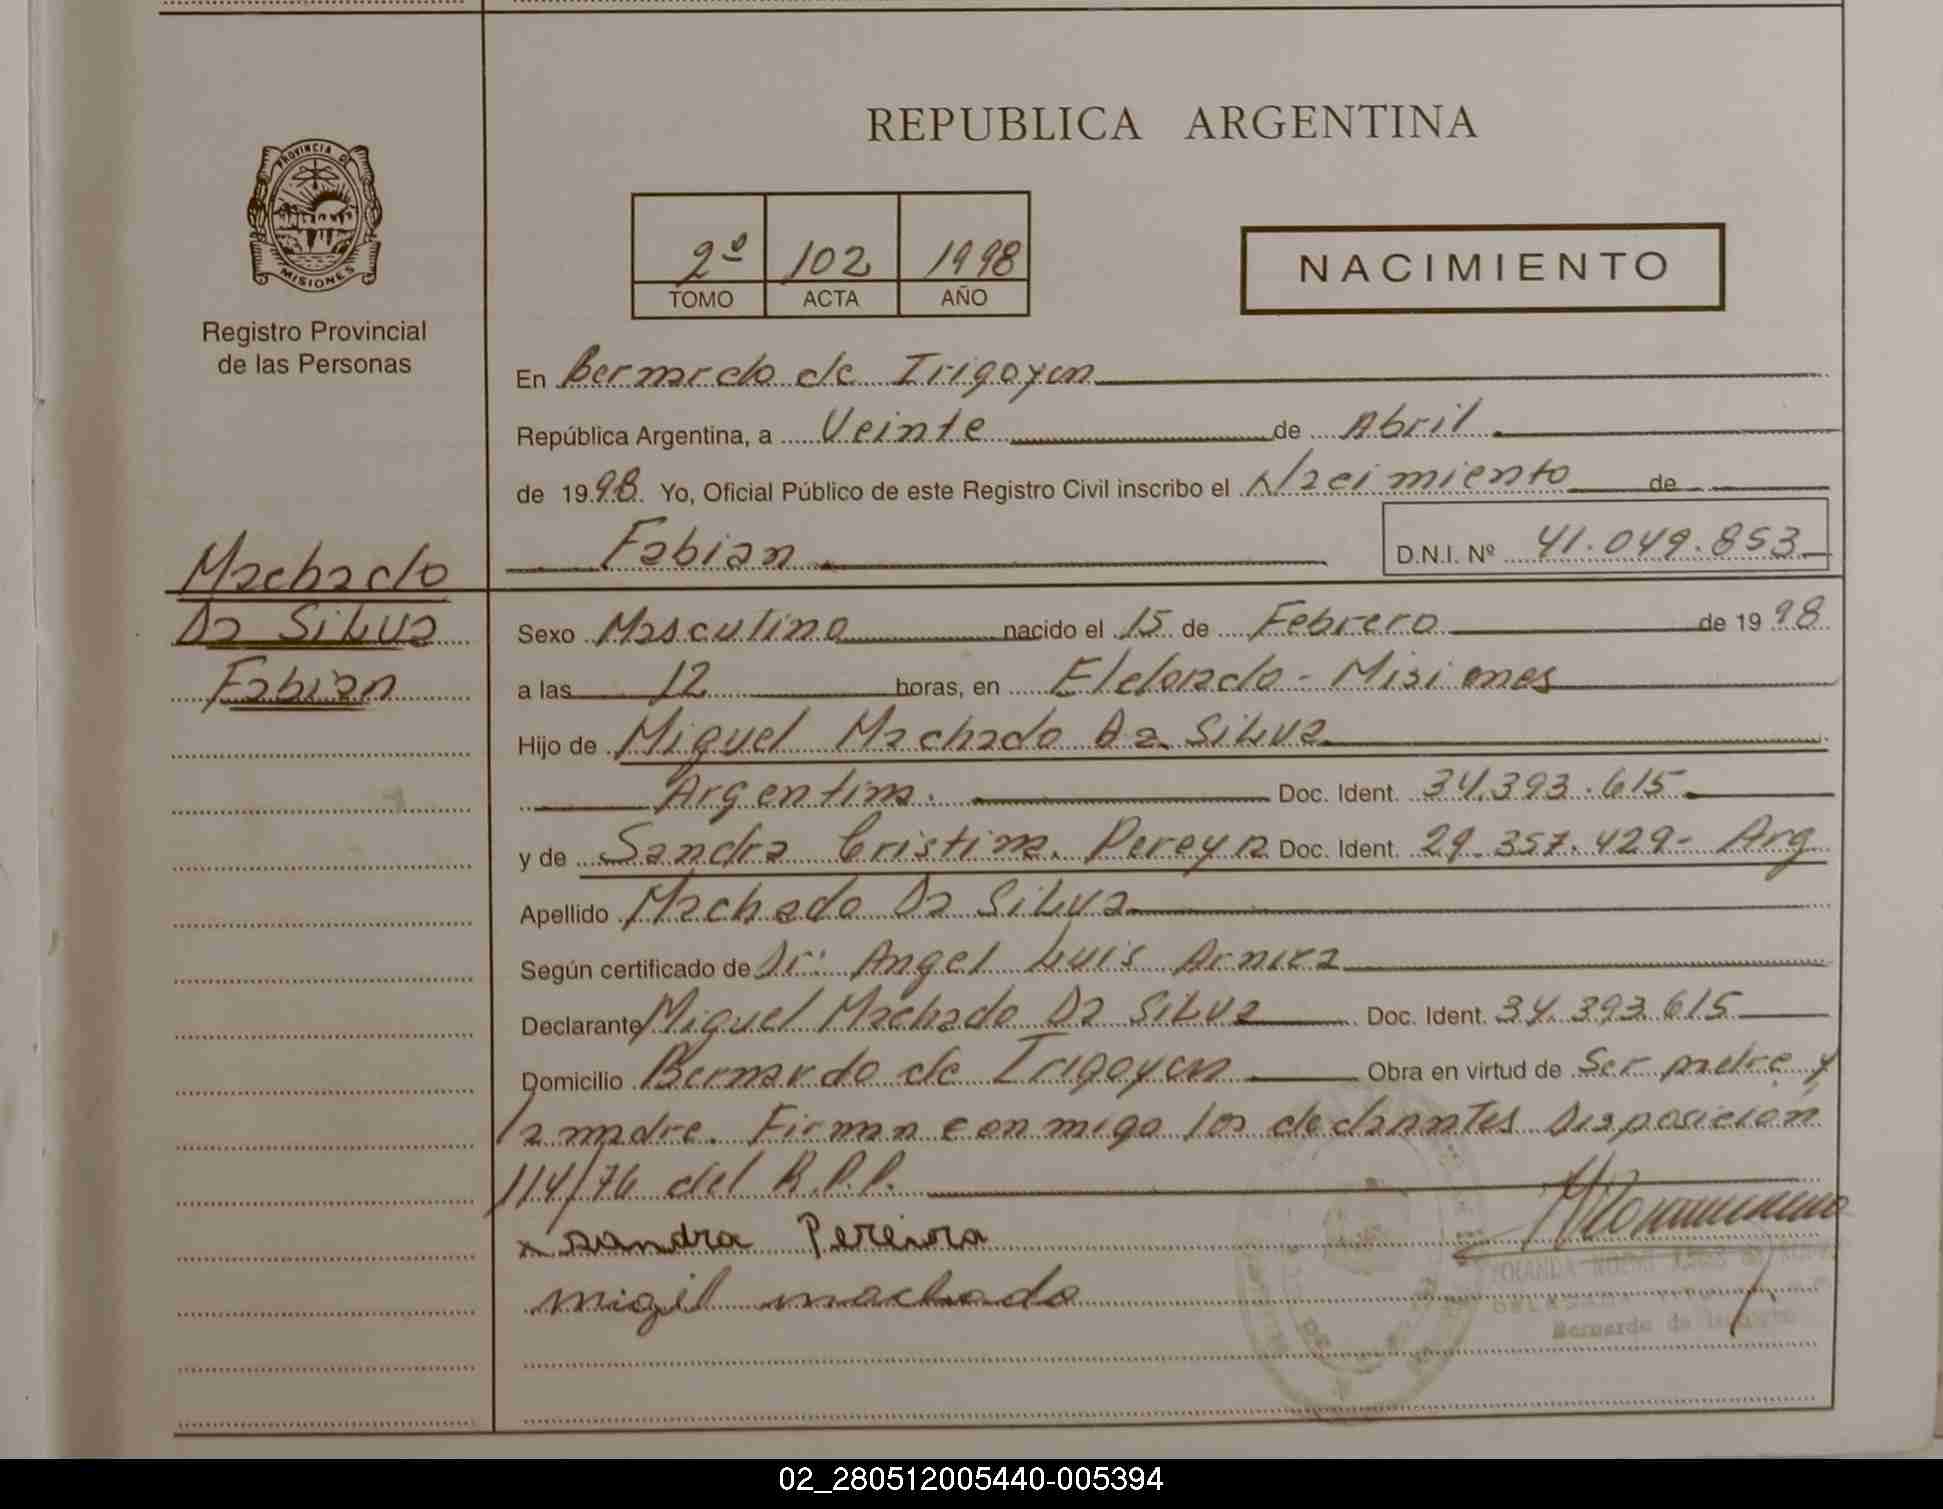 REPUBLICA ARGENTINA
PROVINCIA DE
MISIONES
Registro Provincial
de las Personas
2º 102 1998
TOMO ACTA AÑO
NACIMIENTO
En Bernardo de Irigoyen
República Argentina, a Veinte de Abril
de 1998. Yo, Oficial Público de este Registro Civil inscribo el Nacimiento de
Fabian D.N.I. Nº 41.049.853
Machado
Da Silva
Fabian
Sexo Masculino nacido el 15 de Febrero de 1998
a las 12 horas, en Eldorado - Misiones
Hijo de Miguel Machado Da Silva
Argentina. Doc. Ident. 34.393.615
y de Sandra Cristina Pereyra Doc. Ident. 29.357.429- Arg
Apellido Machado Da Silva
Según certificado de Dr: Angel Luis
Declarante Miguel Machado Da Silva Doc. Ident. 34.393.615
Domicilio Bernardo de Irigoyen Obra en virtud de Ser padre y
la madre. Firman conmigo los declarantes Disposición
114/76 del R.P.P.
x sandra Pereira
migil machado
YOLANDA
Bernardo de Irigoyen
02_280512005440-005394